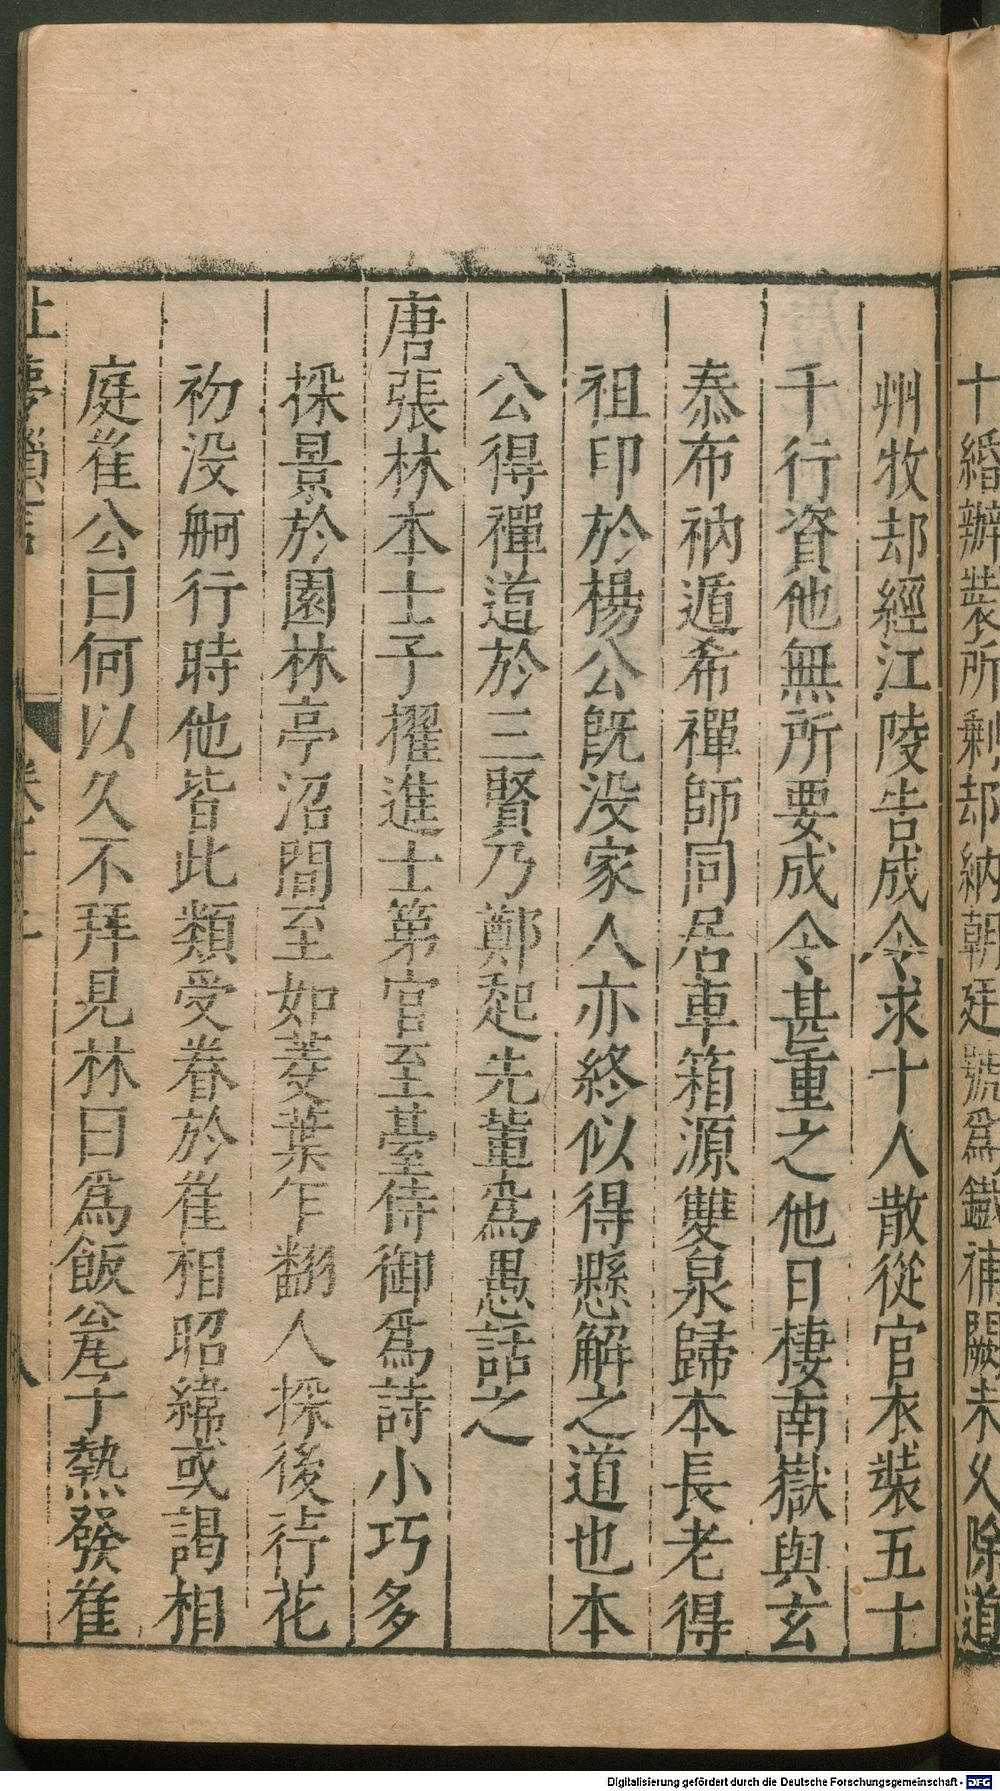 十緡辦裝所剩却納朝廷號爲鐵補闕未乆除道
州牧却經江陵告成令求十人散從官衣裝五十
千行資他無所要成令甚重之他日棲南嶽與玄
泰布衲遁希禪師同居車箱源雙泉歸本長老得
祖印於楊公旣没家人亦終似得懸解之道也本
公得禪道於三賢乃鄭起先輩爲愚話之
唐張林本士子擢進士第官至臺侍御爲詩小巧多
採景於園林亭沼間至如菱葉乍翻人採後荇花
初没舸行時他皆此類受眷於崔相昭緯或謁相
庭崔公曰何以久不拜見林曰爲飯瓮子熱發崔
北夢瑣言
卷十
八
Digitalisierung gefördert durch die Deutsche Forschungsgemeinschaft - DFG